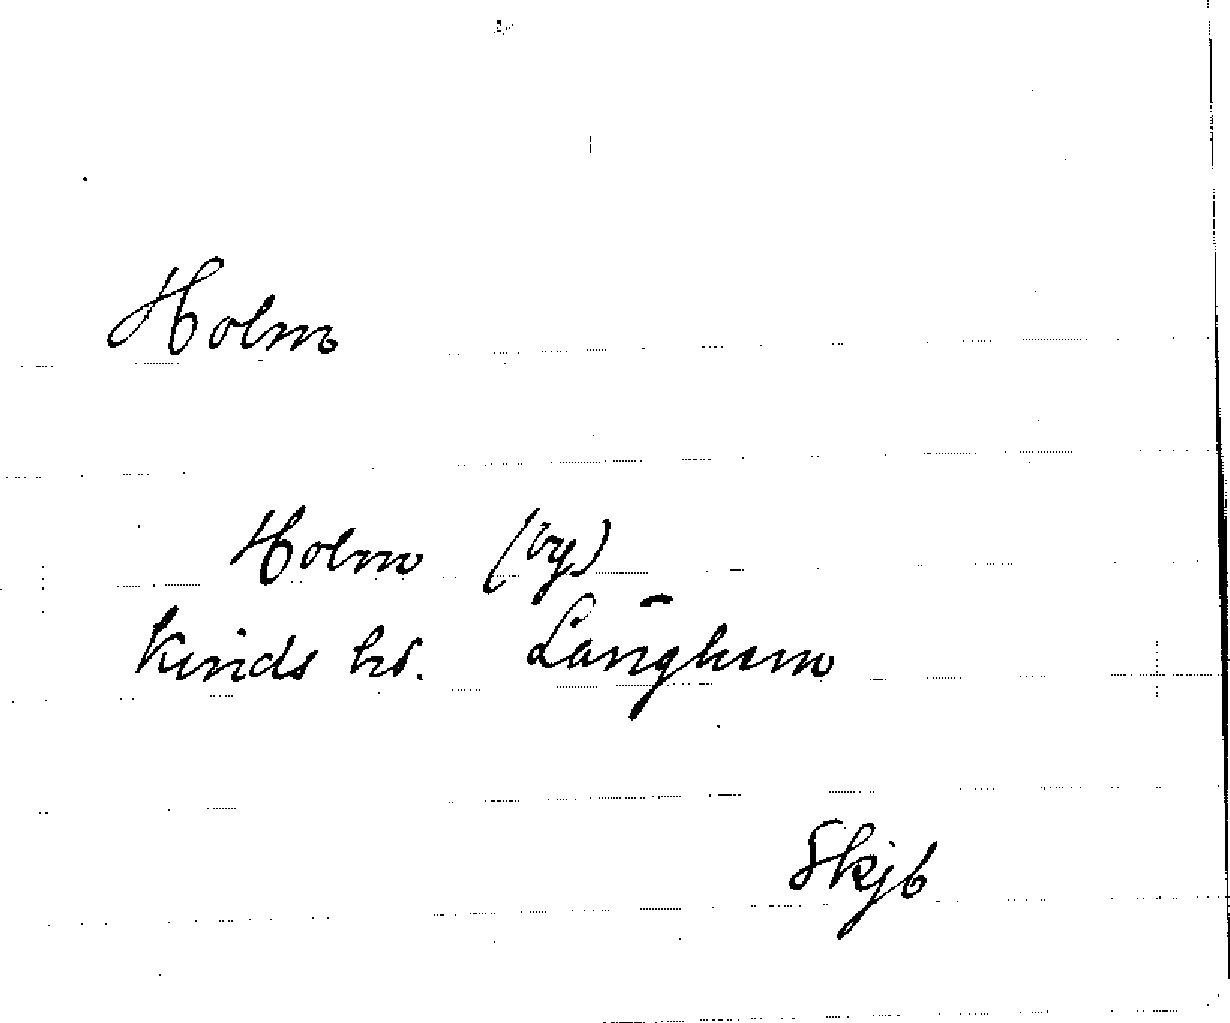 Holm
Holm (by)
Kinds hd. Länghem
Skjb